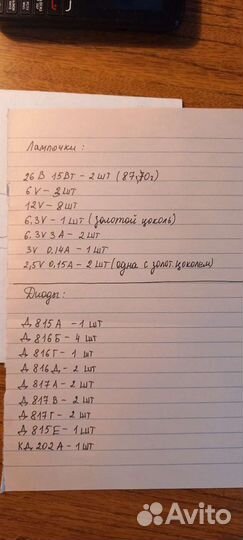 Лампочки:
26 В 15Вт - 2 шт (87,70г)
6 V - 3 шт
12V - 8 шт
6,3V - 1 шт (золотой цоколь)
6,3V 3А - 2 шт
3V 0,14А - 1 шт
2,5V 0,15А - 2 шт (одна с золот.цоколем)
Диоды:
Д 815 А - 1 шт
Д 816 Б - 4 шт
Д 816 Г - 1 шт
Д 816 Д - 2 шт
Д 817 А - 2 шт
Д 817 В - 2 шт
Д 817 Г - 2 шт
Д 815 Е - 1 шт
КД 202 А - 1 шт
Avito